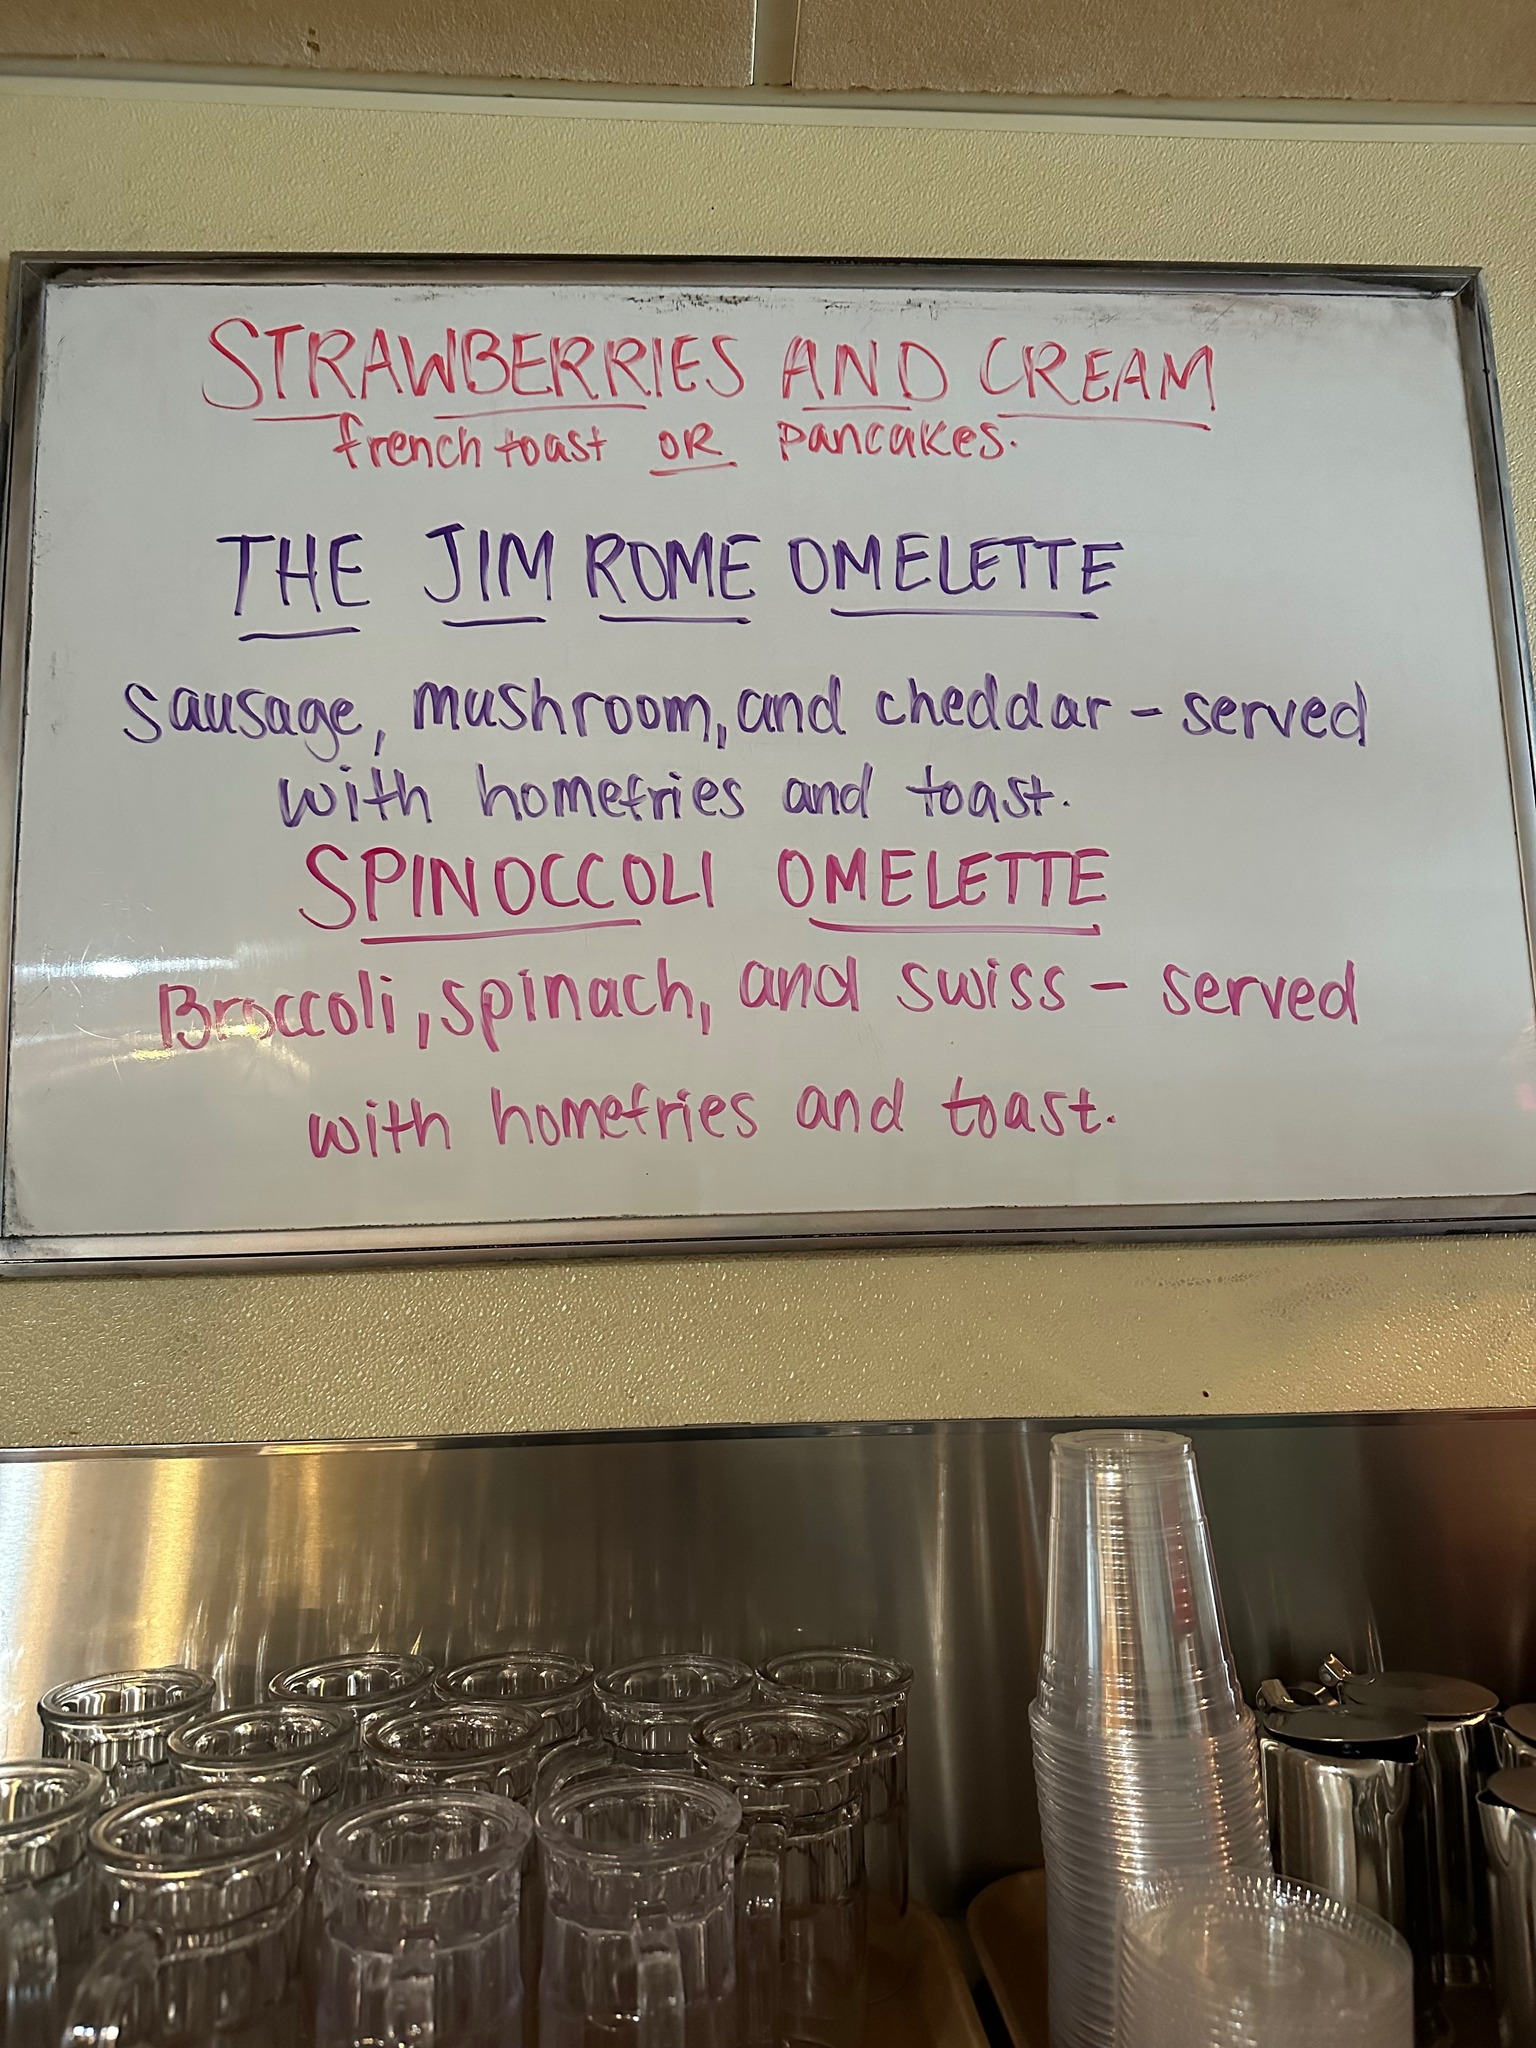 STRAWBERRIES AND CREAM
french toast OR pancakes.
THE JIM ROME OMELETTE
sausage, mushroom, and cheddar - served
with homefries and toast.
SPINOCCOLI OMELETTE
Broccoli, spinach, and swiss - served
with homefries and toast.